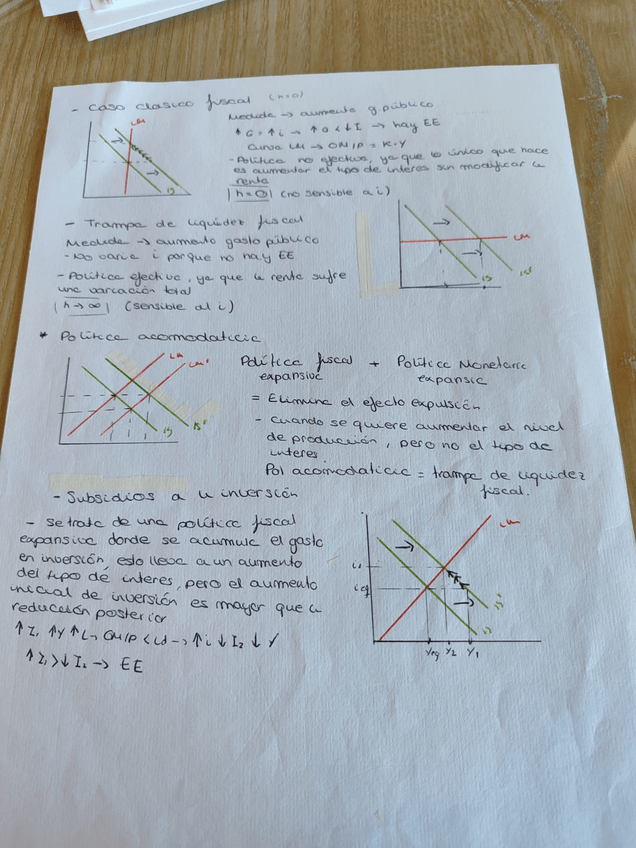 - Caso clasico fiscal (h=0)
LM
IS
Medida → aumento g. público
↑ G = ↑ i → ↑ G < ↓ I → hay EE
Curva LM → OM/P = K·Y
- Política no efectiva, ya que lo único que hace
es aumentar el tipo de interes sin modificar la
renta
|h=0| (no sensible a i)
- Trampa de liquidez fiscal
Medida → aumento gasto público
- No varia i porque no hay EE
- Política efectiva, ya que la renta sufre
una variación total
|h→∞| (sensible al i)
LM
IS
IS'
* Política acomodaticia
LM
LM'
IS
IS'
Política fiscal + Política Monetaria
expansiva expansia
= Elimina el efecto expulsión
- Cuando se quiere aumentar el nivel
de producción, pero no el tipo de
interes.
Pol acomodaticia = trampa de liquidez
fiscal.
- Subsidios a la inversión
- Se trata de una política fiscal
expansiva donde se acumula el gasto
en inversión, esto lleva a un aumento
del tipo de interes, pero el aumento
inicial de inversión es mayor que la
reducción posterior
↑ I₁ ↑Y ↑ L → OM/P < Ld → ↑ i ↓ I₂ ↓ Y
↑ I₁ > ↓ I₂ → EE
LM
i₁
ieq
IS'
IS
Yeq Y₂ Y₁